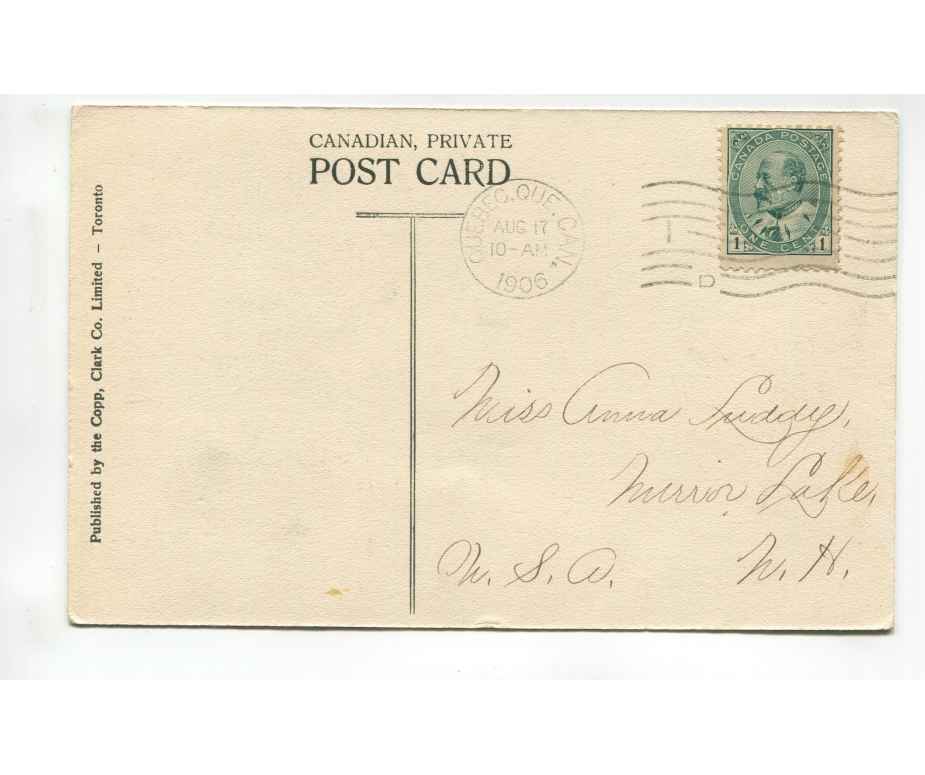 CANADIAN, PRIVATE
POST CARD
Published by the Copp, Clark Co. Limited – Toronto
QUEBEC, QUE. CAN.
AUG 17
10-AM
1906
D
CANADA POSTAGE
1 ONE CENT 1
Miss Anna Luddy,
Mirror Lake,
N. H.
U. S. A.